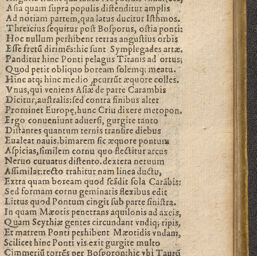 Asia quam supra populis distenditur amplis
Ad notiam partem, qua latus ducitur Isthmos.
Threicius sequitur post Bosporus, ostia ponti:
Hoc nullum perhibent terras angustius orbis
Esse fretũ dirimẽs: hic sunt Symplegades artæ.
Panditur hinc Ponti pelagus Titanis ad ortus,
Quod petit obliquo boream solemq; meatu.
Hinc atq; hinc medio ꝓcurrũt æquore colles.
Vnus, qui veniens Asiæ de parte Carambis
Dicitur, australis: sed contra finibus alter
Prominet Europę, hunc Criu dixere metopon.
Ergo conueniunt aduersi, gurgite tanto
Distantes quantum ternis transire diebus
Eualeat nauis. bimarem sic æquore pontum
Aspicias, similem cornu quo flectitur arcus
Neruo curuatus distento. dextera neruum
Assimilat: recto trahitur nam linea ductu,
Extra quam boream quod scãdit sola Carābis:
Sed formam cornu geminatis flexibus edit
Littus quod Pontum cingit sub parte sinistra.
In quam Mæotis penetrans aquilonis ad axeis,
Quam Scythiæ gentes circundant vndiq; ripis,
Et matrem Ponti perhibent Mæotidis vndam,
Scilicet hinc Ponti vis exit gurgite multo
Cimmeriũ torrẽs per Bosporon: hic vbi Taurũ